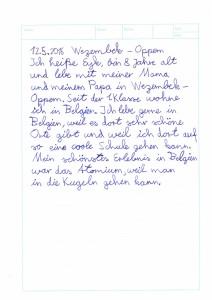 12.5.2016 Wezembek - Oppem
Ich heiße Eyk, bin 8 Jahre alt
und lebe mit meiner Mama
und meinem Papa in Wezembek -
Oppem. Seit der 1. Klasse wohne
ich in Belgien. Ich lebe gerne in
Belgien, weil es dort sehr schöne
Orte gibt und weil ich dort auf
so eine coole Schule gehen kann.
Mein schönstes Erlebnis in Belgien
war das Atomium, weil man
in die Kugeln gehen kann.